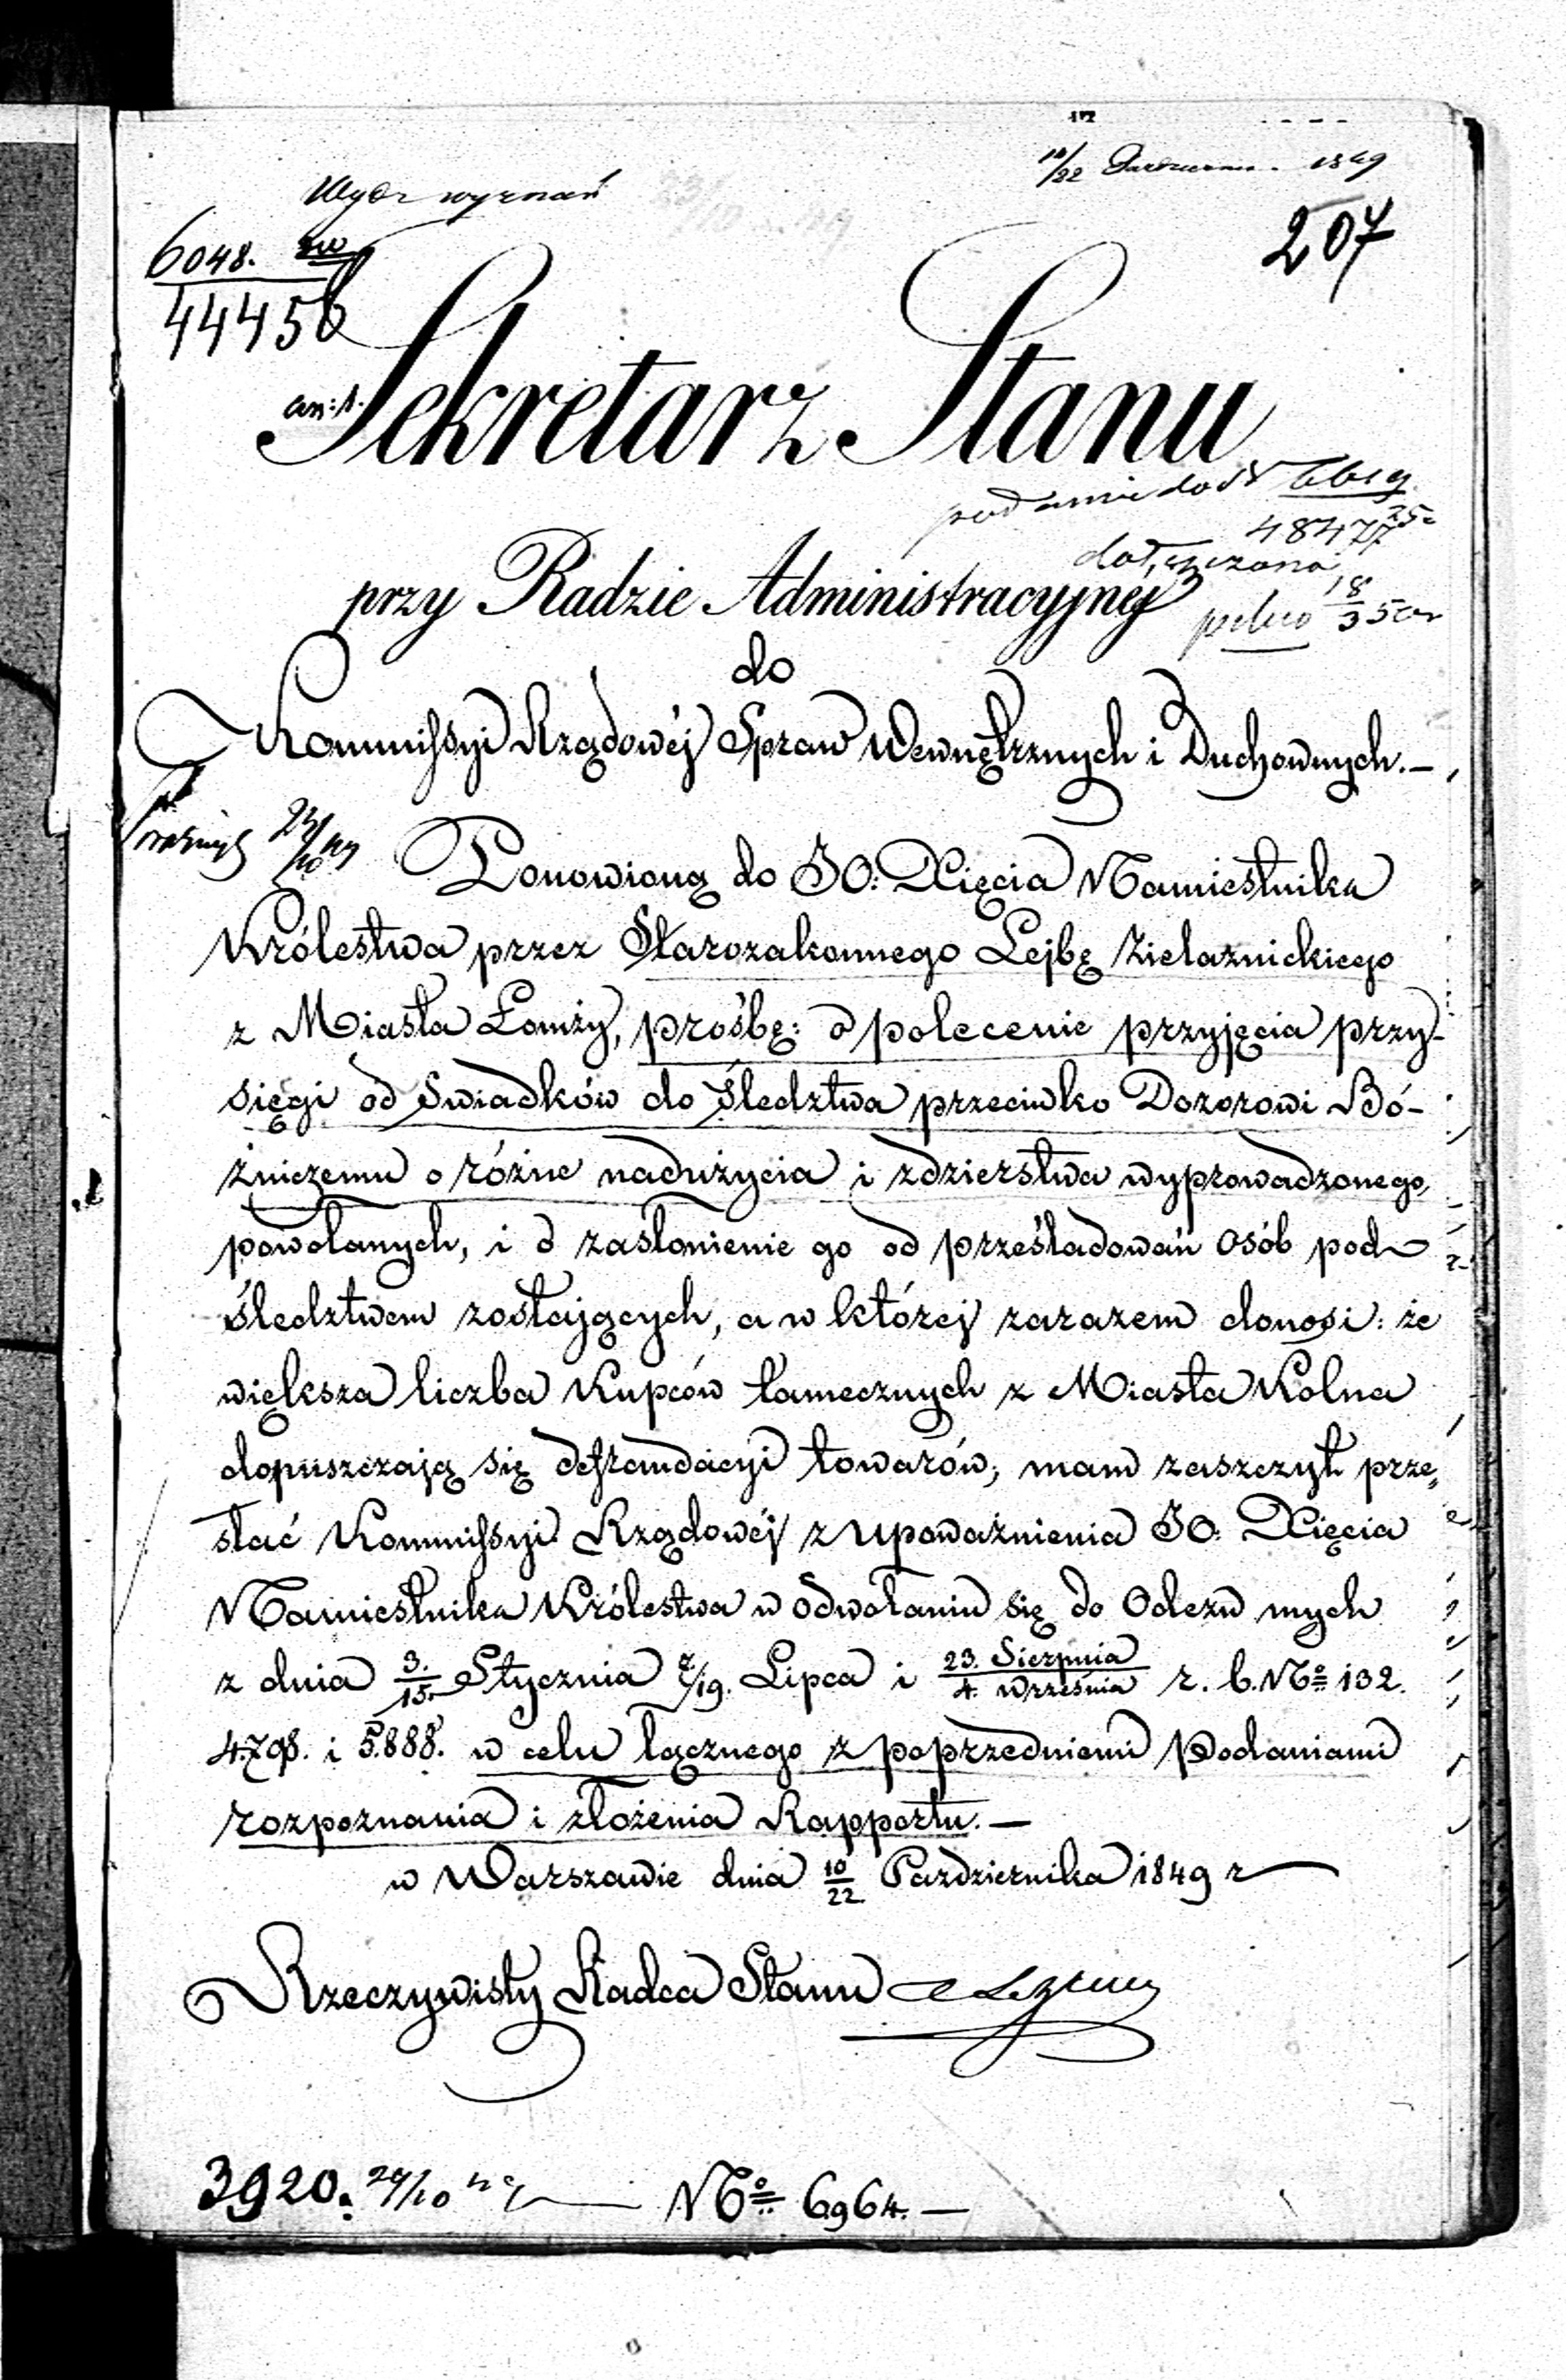 10/22 1849
Wydz wyznań
207
6048.
44456
an: 1.
Sekretarz Stanu
podanie do N 6619
48477
dołączono
18/3 50
przy Radzie Administracyjnéj
do
Kommissyi Rządowéj Spraw Wewnętrznych i Duchownych.—
23/10 49
Ponowioną do JO: Xięcia Namiestnika
Królestwa przez Starozakonnego Lejbę Zielaznickiego
z Miasta Łomży, prośbę: o polecenie przyjęcia przy-
sięgi od Swiadków do śledztwa przeciwko Dozorowi Bó-
żniczemu o różne nadużycia i zdzierstwa wyprowadzonego,
powołanych, i o zasłonienie go od prześladowań osób pod
śledztwem zostających, a w któréj zarazem donosi: że
większa liczba Kupców tamecznych z Miasta Kolna
dopuszczają się defraudacyi towarów; mam zaszczyt prze„
słać Kommissyi Rządowéj z upoważnienia JO: Xięcia
Namiestnika Królestwa w odwołaniu się do Odezw mych
z dnia 3./15. Stycznia 7/19. Lipca i 23. Sierpnia/4. Września r. b. No 132.
4.798. i 5.888. w celu łącznego z poprzedniemi Podaniami
rozpoznania i złożenia Rapportu.—
w Warszawie dnia 10/22 Pazdziernika 1849 r
Rzeczywisty Radca Stanu
3920. 24/10 49 No 6964.—